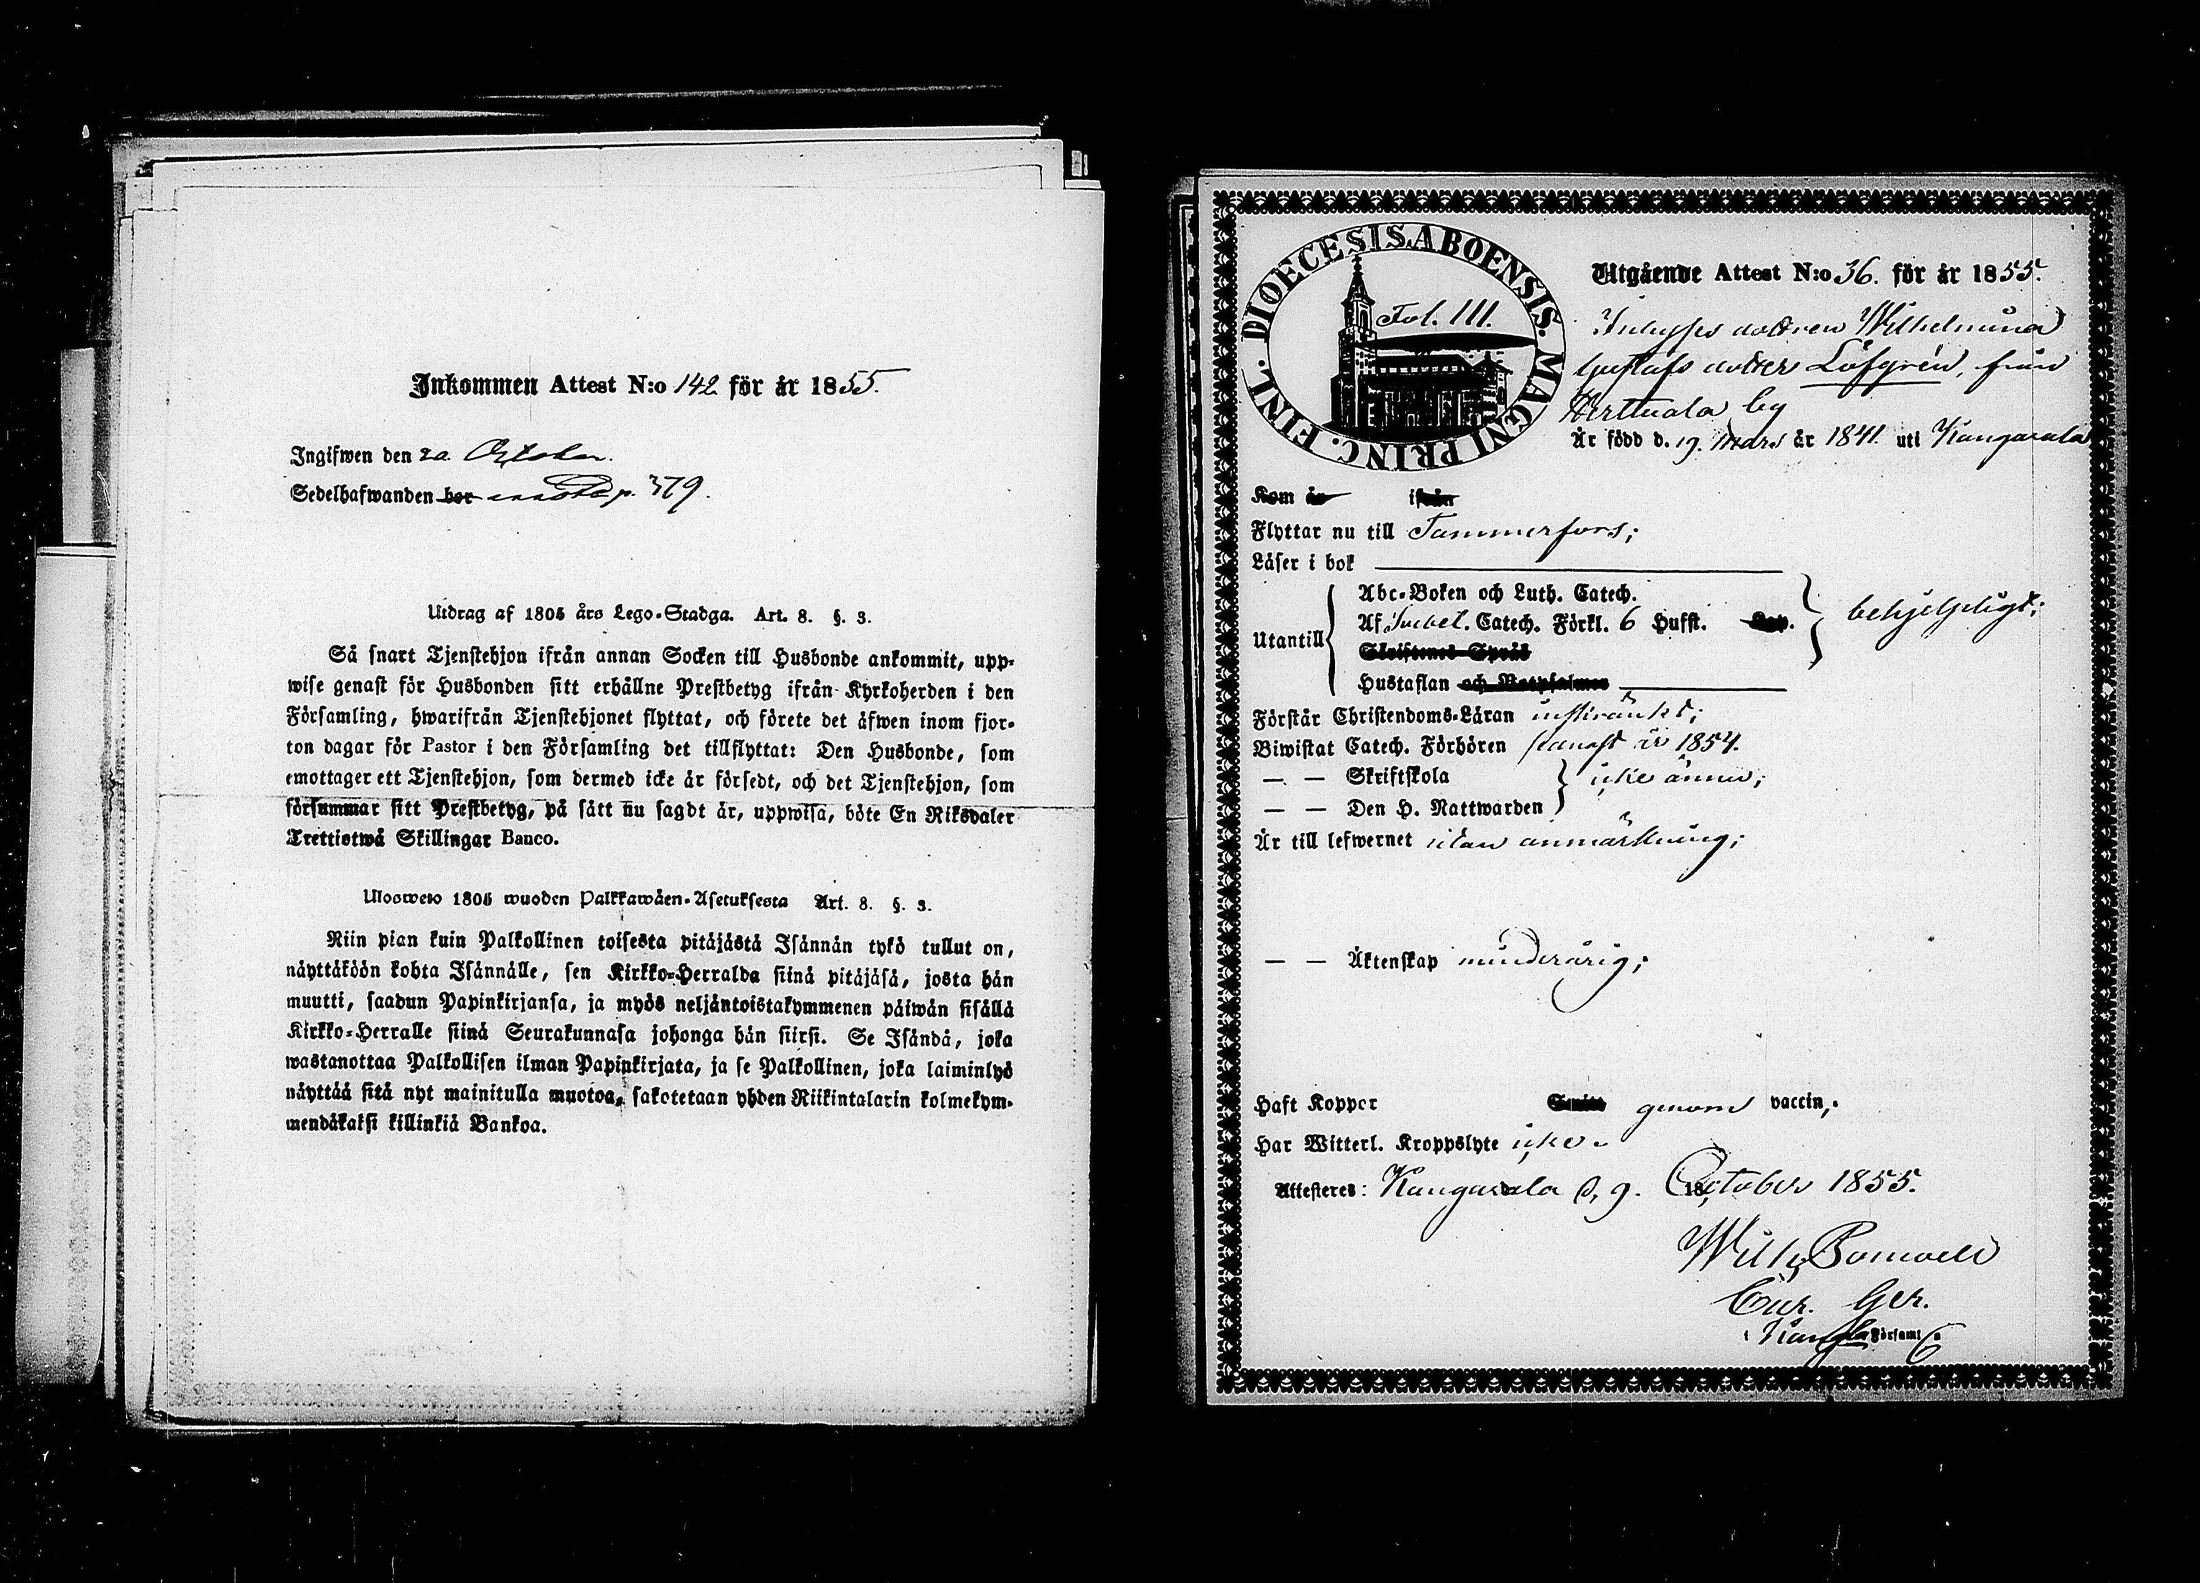 Inkommen Attest N:o 142 för år 1855.
Ingifwen den 20. October.
Sedelhafwanden bor p. 379.
Utdrag af 1805 års Lego-Stadga. Art. 8. §. 3.
Så snart Tjenstehjon ifrån annan Socken till Husbonde ankommit, upp-
wise genast för Husbonden sitt erhållne Prestbetyg ifrån Kyrkoherden i den
Församling, hwarifrån Tjenstehjonet flyttat, och förete det äfwen inom fjor-
ton dagar för Pastor i den Församling det tillflyttat: Den Husbonde, som
emottager ett Tjenstehjon, som dermed icke är försedt, och det Tjenstehjon, som
försummar sitt Prestbetyg, på sätt nu sagdt är, uppwisa, böte En Riksdaler
Trettiotwå Skillingar Banco.
Ulosweto 1805 wuoden Palkkawäen-Asetuksesta Art. 8. §. 3.
Niin pian kuin Palkollinen toisesta pitäjästä Isännän tykö tullut on,
näyttäköön kohta Isännälle, sen Kirkko-Herralda siinä pitäjäsä, josta hän
muutti, saadun Papinkirjansa, ja myös neljäntoistakymmenen päiwän sisällä
Kirkko-Herralle siinä Seurakunnasa johonga hän siirsi. Se Isändä, joka
wastanottaa Palkollisen ilman Papinkirjata, ja se Palkollinen, joka laiminlyö
näyttää sitä nyt mainitulla muotoa, sakotetaan yhden Riikintalarin kolmekym-
mendäkaksi killinkiä Bankoa.
DIOECESIS ABOENSIS. MAGNI PRINC. FINL.
Fol. 111.
Utgående Attest N:o 36. för år 1855.
Inhyses dottren Wilhelmina
Gustafs dotter Löfgrén, från
Herttuala by
Är född d. 19. Mars år 1841. uti Kangasala
Kom år ifrån
Flyttar nu till Tammerfors;
Läser i bok
Utantill
Abc-Boken och Luth. Catech.
Af Svebel. Catech. Förkl. 6 Hufst. Cap.
Skriftenes Språk
Hustaflan och Botpsalmer
behjelpligt;
Förstår Christendoms-Läran inskränkt;
Biwistat Catech. Förhören senast år 1854.
— — Skriftskola
— — Den H. Nattwarden
icke ännu;
Är till lefwernet utan anmärkning;
— — Äktenskap minderårig;
Haft Koppor Smitt genom vaccin,
Har Witterl. Kroppslyte icke.
Attesteres: Kangasala d. 9. October 1855.
Wilh. Bonwell